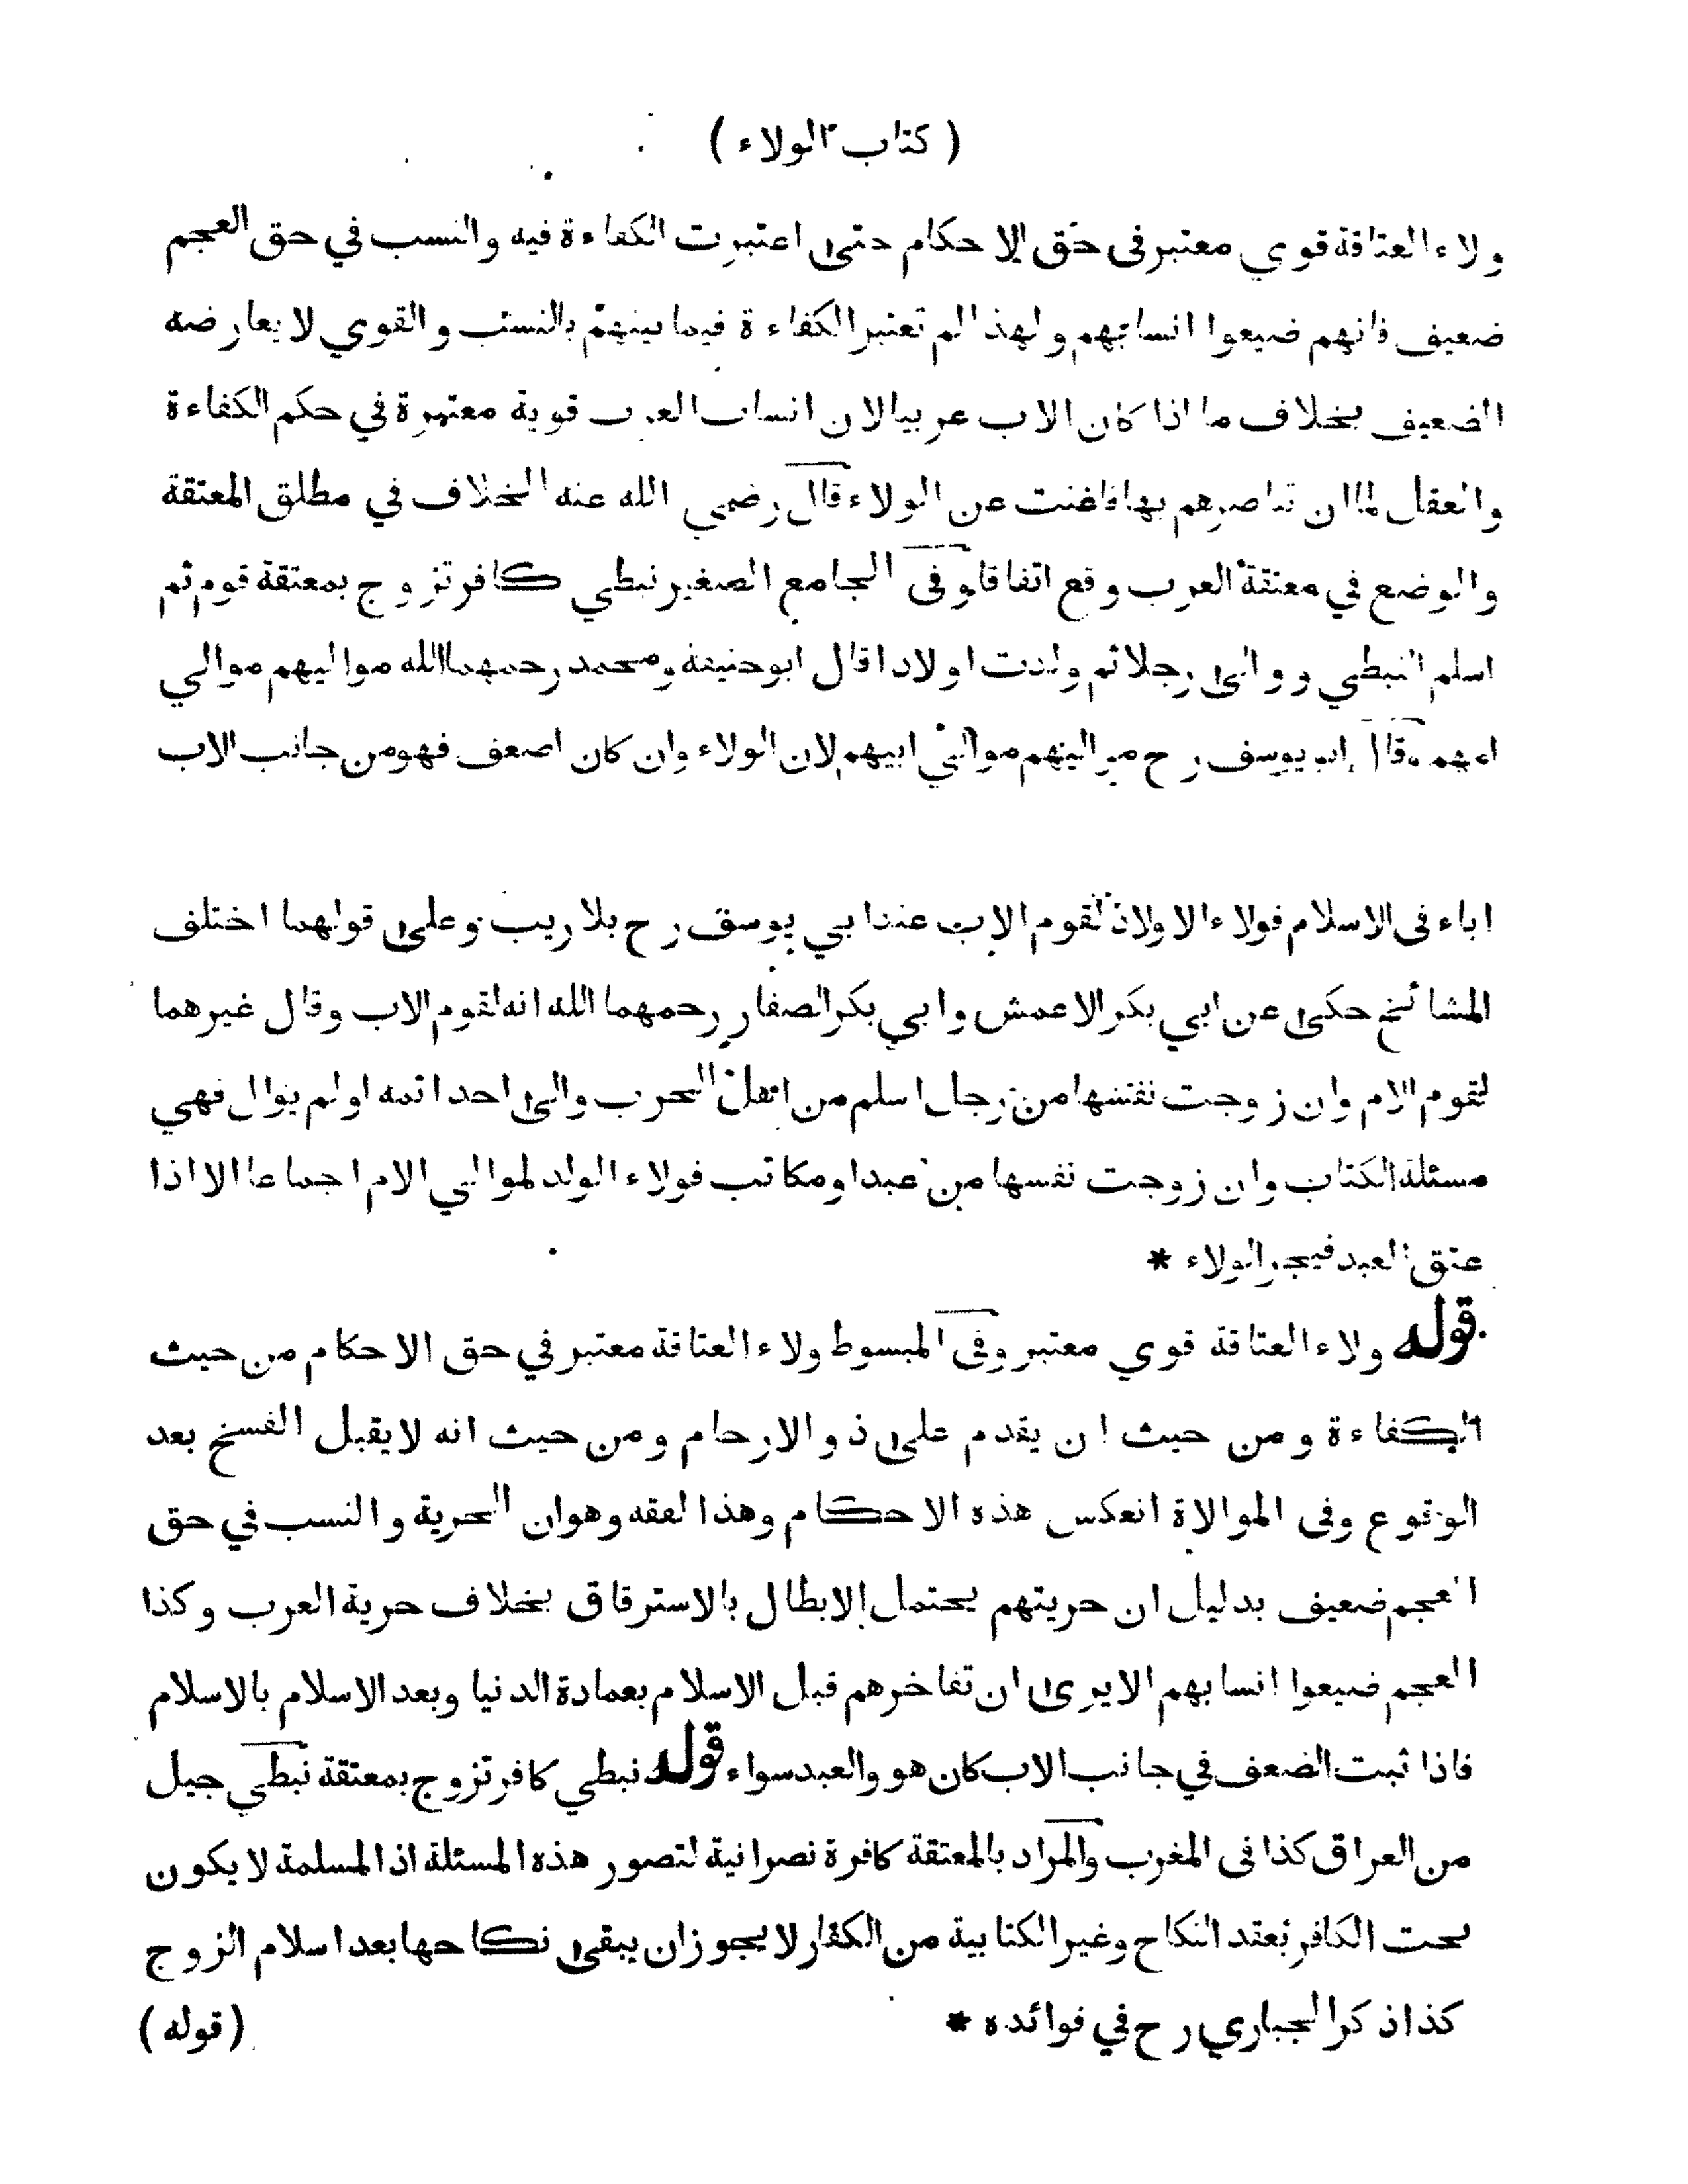 ( كتاب الولاء )
ولاء العتاقة قوي معتبر في حق الاحكام حتى اعتبرت الكفاءة فيه والنسب في حق العجم
ضعيف فانهم ضيعوا انسابهم ولهذا لم تعتبر الكفاءة فيما بينهم بالنسب والقوي لا يعارضه
الضعيف بخلاف ما اذا كان الاب عربيا لان انساب العرب قوية معتبرة في حكم الكفاءة
والعقل لما ان تناصرهم بها فاغنت عن الولاء قال رضي الله عنه الخلاف في مطلق المعتقة
والوضع في معتقة العرب وقع اتفاقا وفي الجامع الصغير نبطي كافر تزوج بمعتقة قوم ثم
اسلم النبطي ووالى رجلا ثم ولدت اولادا قال ابوحنيفة ومحمد رحمهما الله مواليهم موالي
امهم وقال ابو يوسف رح مواليهم موالي ابيهم لان الولاء وان كان اضعف فهو من جانب الاب
اباء في الاسلام فولاء الاولاد لقوم الاب عند ابي يوسف رح بلا ريب وعلى قولهما اختلف
المشائخ حكى عن ابي بكر الاعمش وابي بكر الصفار رحمهما الله انه لقوم الاب وقال غيرهما
لقوم الام وان زوجت نفسها من رجل اسلم من اهل الحرب والى احدا ثمه اولم يوال فهي
مسئلة الكتاب وان زوجت نفسها من عبد او مكاتب فولاء الولد لموالي الام اجماعا الا اذا
عتق العبد فيجر الولاء *
قوله ولاء العتاقة قوي معتبر وفي المبسوط ولاء العتاقة معتبر في حق الاحكام من حيث
الكفاءة ومن حيث ان يقدم على ذو الارحام ومن حيث انه لا يقبل الفسخ بعد
الوقوع وفي الموالاة انعكس هذه الاحكام وهذا لفقه وهو ان الحرية والنسب في حق
العجم ضعيف بدليل ان حريتهم يحتمل الابطال بالاسترقاق بخلاف حرية العرب وكذا
العجم ضيعوا انسابهم الا يرى ان تفاخرهم قبل الاسلام بعمادة الدنيا وبعد الاسلام بالاسلام
فاذا ثبت الضعف في جانب الاب كان هو والعبد سواء قوله نبطي كافر تزوج بمعتقة نبطي جيل
من العراق كذا في المغرب والمراد بالمعتقة كافرة نصرانية لتصور هذه المسئلة اذ المسلمة لا يكون
تحت الكافر بعقد النكاح وغير الكتابية من الكفار لا يجوز ان يبقى نكاحها بعد اسلام الزوج
كذا ذكر الجباري رح في فوائده *
( قوله )